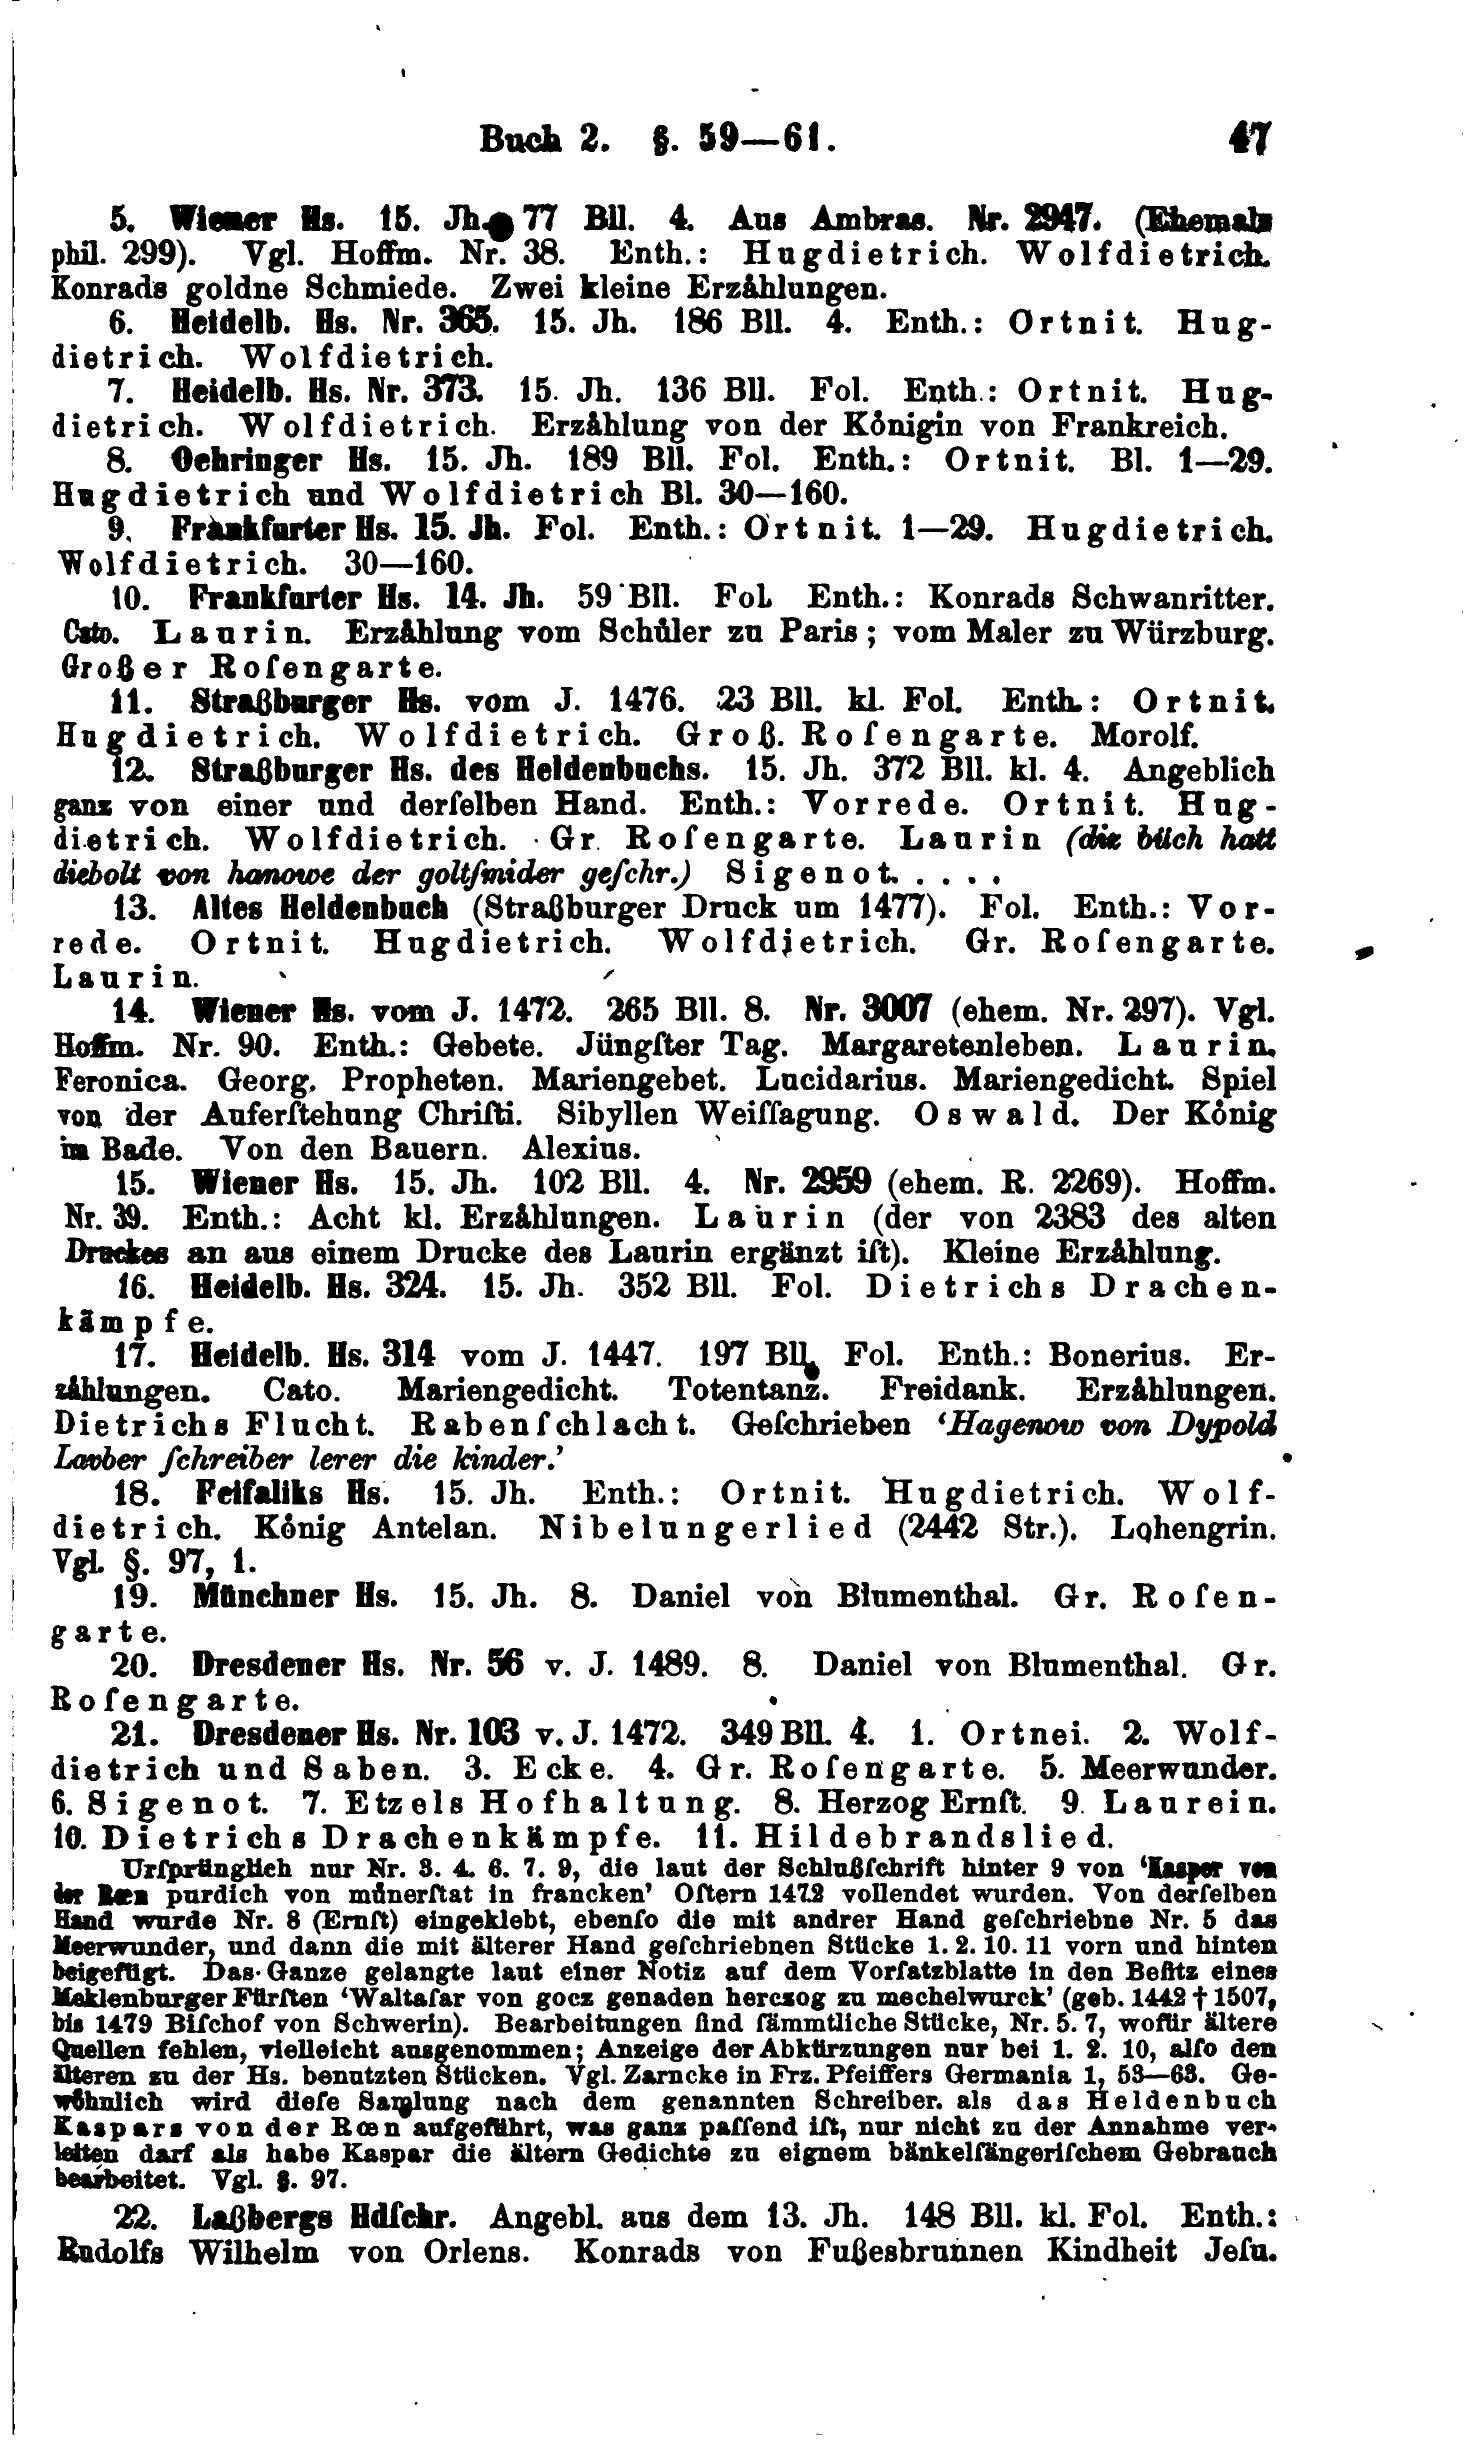 Buch 2. §. 59—61. 47
5. Wiener Hs. 15. Jh. 77 Bll. 4. Aus Ambras. Nr. 2947. (Ehemals
phil. 299). Vgl. Hoffm. Nr. 38. Enth.: Hugdietrich. Wolfdietrich.
Konrads goldne Schmiede. Zwei kleine Erzåhlungen.
6. Heidelb. Hs. Nr. 365. 15. Jh. 186 Bll. 4. Enth.: Ortnit. Hug-
dietrich. Wolfdietrich.
7. Heidelb. Hs. Nr. 373. 15. Jh. 136 Bll. Fol. Enth.: Ortnit. Hug-
dietrich. Wolfdietrich. Erzåhlung von der Kônigin von Frankreich.
8. Oehringer Hs. 15. Jh. 189 Bll. Fol. Enth.: Ortnit. Bl. 1—29.
Hugdietrich und Wolfdietrich Bl. 30—160.
9. Frankfurter Hs. 15. Jh. Fol. Enth.: Ortnit. 1—29. Hugdietrich.
Wolfdietrich. 30—160.
10. Frankfurter Hs. 14. Jh. 59 Bll. Fol. Enth.: Konrads Schwanritter.
Cato. Laurin. Erzåhlung vom Schůler zu Paris; vom Maler zu Würzburg.
Großer Roſengarte.
11. Straßburger Hs. vom J. 1476. 23 Bll. kl. Fol. Enth.: Ortnit.
Hugdietrich. Wolfdietrich. Groß. Roſengarte. Morolf.
12. Straßburger Hs. des Heldenbuchs. 15. Jh. 372 Bll. kl. 4. Angeblich
ganz von einer und derſelben Hand. Enth.: Vorrede. Ortnit. Hug-
dietrich. Wolfdietrich. Gr. Roſengarte. Laurin (diz bůch hatt
diebolt von hanowe der goltſmider geſchr.) Sigenot. . . . .
13. Altes Heldenbuch (Straßburger Druck um 1477). Fol. Enth.: Vor-
rede. Ortnit. Hugdietrich. Wolfdietrich. Gr. Roſengarte.
Laurin.
14. Wiener Hs. vom J. 1472. 265 Bll. 8. Nr. 3007 (ehem. Nr. 297). Vgl.
Hoffm. Nr. 90. Enth.: Gebete. Jüngſter Tag. Margaretenleben. Laurin.
Feronica. Georg. Propheten. Mariengebet. Lucidarius. Mariengedicht. Spiel
von der Auferſtehung Chriſti. Sibyllen Weiſſagung. Oswald. Der Kônig
im Bade. Von den Bauern. Alexius.
15. Wiener Hs. 15. Jh. 102 Bll. 4. Nr. 2959 (ehem. R. 2269). Hoffm.
Nr. 39. Enth.: Acht kl. Erzåhlungen. Laurin (der von 2383 des alten
Druckes an aus einem Drucke des Laurin ergänzt iſt). Kleine Erzåhlung.
16. Heidelb. Hs. 324. 15. Jh. 352 Bll. Fol. Dietrichs Drachen-
kämpfe.
17. Heidelb. Hs. 314 vom J. 1447. 197 Bll. Fol. Enth.: Bonerius. Er-
zåhlungen. Cato. Mariengedicht. Totentanz. Freidank. Erzåhlungen.
Dietrichs Flucht. Rabenſchlacht. Geſchrieben ‘Hagenow von Dypold
Lavber ſchreiber lerer die kinder.’
18. Feifaliks Hs. 15. Jh. Enth.: Ortnit. Hugdietrich. Wolf-
dietrich. Kônig Antelan. Nibelungerlied (2442 Str.). Lohengrin.
Vgl. §. 97, 1.
19. Münchner Hs. 15. Jh. 8. Daniel von Blumenthal. Gr. Roſen-
garte.
20. Dresdener Hs. Nr. 56 v. J. 1489. 8. Daniel von Blumenthal. Gr.
Roſengarte.
21. Dresdener Hs. Nr. 103 v. J. 1472. 349 Bll. 4. 1. Ortnei. 2. Wolf-
dietrich und Saben. 3. Ecke. 4. Gr. Roſengarte. 5. Meerwunder.
6. Sigenot. 7. Etzels Hofhaltung. 8. Herzog Ernſt. 9. Laurein.
10. Dietrichs Drachenkämpfe. 11. Hildebrandslied.
Urſprünglich nur Nr. 3. 4. 6. 7. 9, die laut der Schlußſchrift hinter 9 von ‘Kasper von
der Rœn purdich von můnerſtat in francken’ Oſtern 1472 vollendet wurden. Von derſelben
Hand wurde Nr. 8 (Ernſt) eingeklebt, ebenſo die mit andrer Hand geſchriebne Nr. 5 das
Meerwunder, und dann die mit älterer Hand geſchriebnen Stücke 1. 2. 10. 11 vorn und hinten
beigefügt. Das Ganze gelangte laut einer Notiz auf dem Vorſatzblatte in den Beſitz eines
Meklenburger Fürſten ‘Waltaſar von gocz genaden herczog zu mechelwurck’ (geb. 1442 † 1507,
bis 1479 Biſchof von Schwerin). Bearbeitungen ſind ſämmtliche Stücke, Nr. 5. 7, wofür ältere
Quellen fehlen, vielleicht ausgenommen; Anzeige der Abkürzungen nur bei 1. 2. 10, alſo den
älteren zu der Hs. benutzten Stücken. Vgl. Zarncke in Frz. Pfeiffers Germania 1, 53—63. Ge-
wöhnlich wird dieſe Samlung nach dem genannten Schreiber als das Heldenbuch
Kaspars von der Rœn aufgeführt, was ganz paſſend iſt, nur nicht zu der Annahme ver-
leiten darf als habe Kaspar die ältern Gedichte zu eignem bänkelſängeriſchem Gebrauch
bearbeitet. Vgl. §. 97.
22. Laßbergs Hdſchr. Angebl. aus dem 13. Jh. 148 Bll. kl. Fol. Enth.:
Rudolfs Wilhelm von Orlens. Konrads von Fußesbrunnen Kindheit Jeſu.